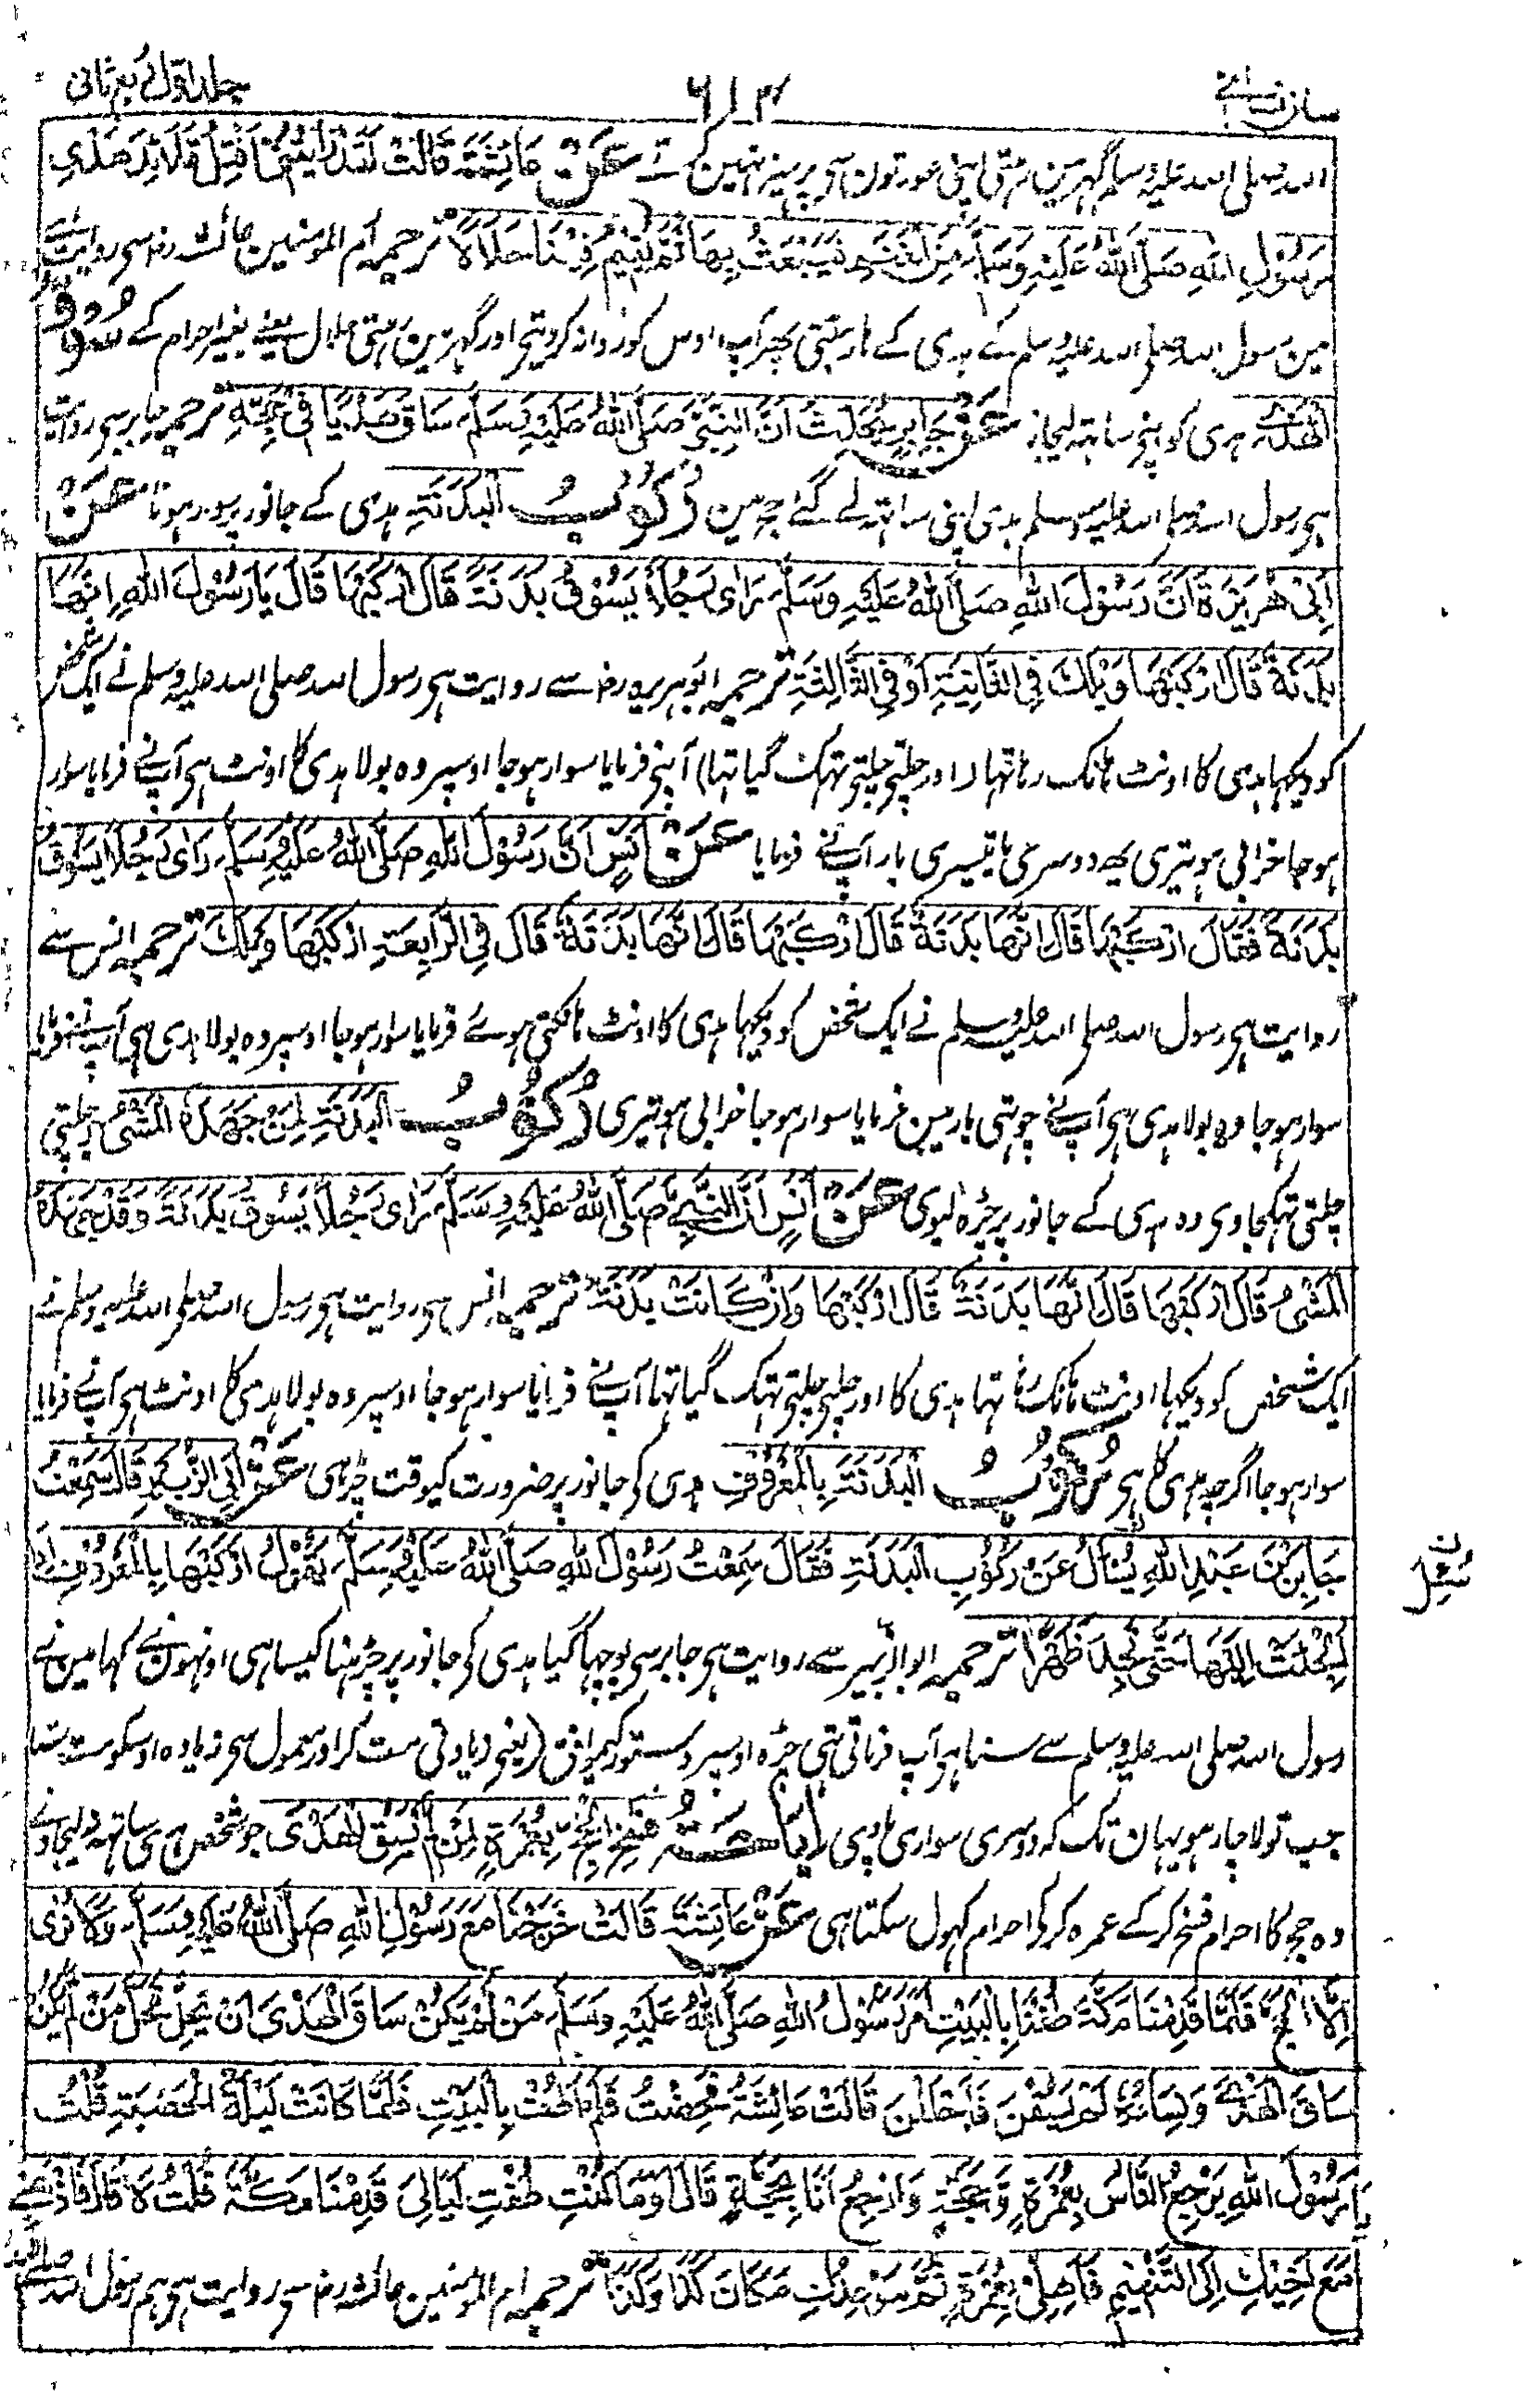 سنن نسائی
۶۱۴
جلد اول ربع ثانی
اللہ صلی اللہ علیہ وسلم گہر مین رہتی اپنی عورتون سے پرہیز نہین کرتے عَنْ عَائِشَةَ قَالَتْ لَقَدْ رَأَيْتُنِيْ أَفْتِلُ قَلَائِدَ هَدْيِ
رَسُوْلِ اللهِ صَلَّى اللهُ عَلَيْهِ وَسَلَّمَ مِنَ الْغَنَمِ فَيَبْعَثُ بِهَا ثُمَّ يُقِيْمُ فِيْنَا حَلَالًا ترجمہ ام المومنین عائشہ رضہ سی روایت ہے
مین رسول اللہ صلی اللہ علیہ وسلم کے ہدی کے ہار بٹتی پہر آپ اوس کو روانہ کردیتی اور گہر مین رہتی حلال یعنے بغیر احرام کے سَوْقُ
الْهَدْيِ ہدی کو اپنی ساتہہ لیجانا عَنْ جَابِرٍ يُحَدِّثُ اَنَّ النَّبِيَّ صَلَّى اللهُ عَلَيْهِ وَسَلَّمَ سَاقَ هَدْيًا فِيْ حَجَّتِهِ ترجمہ جابر سی روایت
ہی رسول اللہ صلی اللہ علیہ وسلم ہدی اپنی ساتہہ لے گئے حج مین رُكُوْبُ الْبَدَنَةِ ہدی کے جانور پر سوار ہونا عَنْ
اَبِيْ هُرَيْرَةَ اَنَّ رَسُوْلَ اللهِ صَلَّى اللهُ عَلَيْهِ وَسَلَّمَ رَاٰى رَجُلًا يَسُوْقُ بَدَنَةً قَالَ ارْكَبْهَا قَالَ يَا رَسُوْلَ اللهِ اِنَّهَا
بَدَنَةٌ قَالَ ارْكَبْهَا وَيْلَكَ فِي الثَّانِيَةِ اَوْ فِي الثَّالِثَةِ ترجمہ ابوہریرہ رضہ سے روایت ہی رسول اللہ صلی اللہ علیہ وسلم نے ایک شخص
کو دیکہا ہدی کا اونٹ ہانک رہا تہا (اور چلتی چلتی تہک گیا تہا) آپنی فرمایا سوار ہوجا اوسپر وہ بولا ہدی کا اونٹ ہی آپنے فرمایا سوار
ہوجا خرابی ہو تیری یہ دوسری یا تیسری بار آپنے فرمایا عَنْ اَنَسٍ اَنَّ رَسُوْلَ اللهِ صَلَّى اللهُ عَلَيْهِ وَسَلَّمَ رَاٰى رَجُلًا يَسُوْقُ
بَدَنَةً فَقَالَ ارْكَبْهَا قَالَ اِنَّهَا بَدَنَةٌ قَالَ ارْكَبْهَا قَالَ اِنَّهَا بَدَنَةٌ قَالَ فِي الرَّابِعَةِ ارْكَبْهَا وَيْلَكَ ترجمہ انس سے
روایت ہی رسول اللہ صلی اللہ علیہ وسلم نے ایک شخص کو دیکہا ہدی کا اونٹ ہانکتی ہوئے فرمایا سوار ہوجا اوسپر وہ بولا ہدی ہی آپنے فرمایا
سوار ہوجا وہ بولا ہدی ہی آپنے چوتہی بار مین فرمایا سوار ہوجا خرابی ہو تیری رُكُوْبُ الْبَدَنَةِ لِمَنْ جَهَدَهُ الْمَشْيُ جو چلتی
چلتی تہک جاوی وہ ہدی کے جانور پر چڑہ لیوی عَنْ اَنَسٍ اَنَّ النَّبِيَّ صَلَّى اللهُ عَلَيْهِ وَسَلَّمَ رَاٰى رَجُلًا يَسُوْقُ بَدَنَةً وَقَدْ جَهَدَهُ
الْمَشْيُ قَالَ ارْكَبْهَا قَالَ اِنَّهَا بَدَنَةٌ قَالَ ارْكَبْهَا وَاِنْ كَانَتْ بَدَنَةً ترجمہ انس سی روایت ہی رسول اللہ صلی اللہ علیہ وسلم نے
ایک شخص کو دیکہا اونٹ ہانک رہا تہا ہدی کا اور چلتی چلتی تہک گیا تہا آپنے فرمایا سوار ہوجا اوسپر وہ بولا ہدی کا اونٹ ہی آپنے فرمایا
سوار ہوجا اگرچہ ہدی کا ہی رُكُوْبُ الْبَدَنَةِ بِالْمَعْرُوْفِ ہدی کی جانور پر ضرورت کیوقت چڑہی عَنْ اَبِي الزُّبَيْرِ قَالَ سَمِعْتُ
جَابِرَ بْنَ عَبْدِ اللهِ يُسْاَلُ عَنْ رُكُوْبِ الْبَدَنَةِ فَقَالَ سَمِعْتُ رَسُوْلَ اللهِ صَلَّى اللهُ عَلَيْهِ وَسَلَّمَ يَقُوْلُ ارْكَبْهَا بِالْمَعْرُوْفِ اِذَا
ن سُئِلَ
اُلْجِئْتَ اِلَيْهَا حَتّٰى تَجِدَ ظَهْرًا ترجمہ ابو الزبیر سے روایت ہی جابر سی پوچہا گیا ہدی کی جانور پر چڑہنا کیسا ہی اونہون نے کہا مین نے
رسول اللہ صلی اللہ علیہ وسلم سے سنا ہی آپ فرماتی تہی چڑہ اوسپر دستور کیموافق (یعنی زیادتی مت کر اور معمول سی زیادہ اوسکو مت ستا
جب تو لاچار ہو یہان تک کہ دوسری سواری پاوی اِبَاحَةُ فَسْخِ الْحَجِّ بِعُمْرَةٍ لِمَنْ لَّمْ يَسُقِ الْهَدْيَ جو شخص ہدی ساتہہ نہ لیجاوے
وہ حج کا احرام فسخ کرکے عمرہ کرکی احرام کہول سکتا ہی عَنْ عَائِشَةَ قَالَتْ خَرَجْنَا مَعَ رَسُوْلِ اللهِ صَلَّى اللهُ عَلَيْهِ وَسَلَّمَ وَلَا نُرٰى
اِلَّا الْحَجَّ فَلَمَّا قَدِمْنَا مَكَّةَ طُفْنَا بِالْبَيْتِ اَمَرَ رَسُوْلُ اللهِ صَلَّى اللهُ عَلَيْهِ وَسَلَّمَ مَنْ لَّمْ يَكُنْ سَاقَ الْهَدْيَ اَنْ يَّحِلَّ فَحَلَّ مَنْ لَّمْ يَكُنْ
سَاقَ الْهَدْيَ وَنِسَاؤُهُ لَمْ يَسُقْنَ فَاَحْلَلْنَ قَالَتْ عَائِشَةُ فَحِضْتُ فَلَمْ اَطُفْ بِالْبَيْتِ فَلَمَّا كَانَتْ لَيْلَةُ الْحَصْبَةِ قُلْتُ
يَا رَسُوْلَ اللهِ يَرْجِعُ النَّاسُ بِعُمْرَةٍ وَّحَجَّةٍ وَاَرْجِعُ اَنَا بِحَجَّةٍ قَالَ اَوَمَا كُنْتِ طُفْتِ لَيَالِيَ قَدِمْنَا مَكَّةَ قُلْتُ لَا قَالَ فَاذْهَبِيْ
مَعَ اَخِيْكِ اِلَى التَّنْعِيْمِ فَاَهِلِّيْ بِعُمْرَةٍ ثُمَّ مَوْعِدُكِ مَكَانَ كَذَا وَكَذَا ترجمہ ام المومنین عائشہ رضہ سی روایت ہی ہم رسول اللہ صلی اللہ